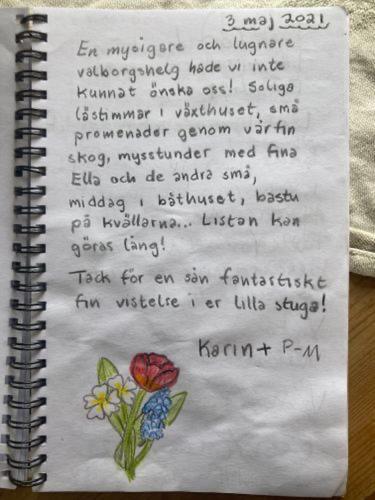 3 maj 2021
En mysigare och lugnare
valborgshelg hade vi inte
kunnat önska oss! Soliga
lästimmar i växthuset, små
promenader genom vårfin
skog, mysstunder med fina
Ella och de andra små,
middag i båthuset, bastu
på kvällarna... Listan kan
göras lång!
Tack för en sån fantastiskt
fin vistelse i er lilla stuga!
Karin + P-M